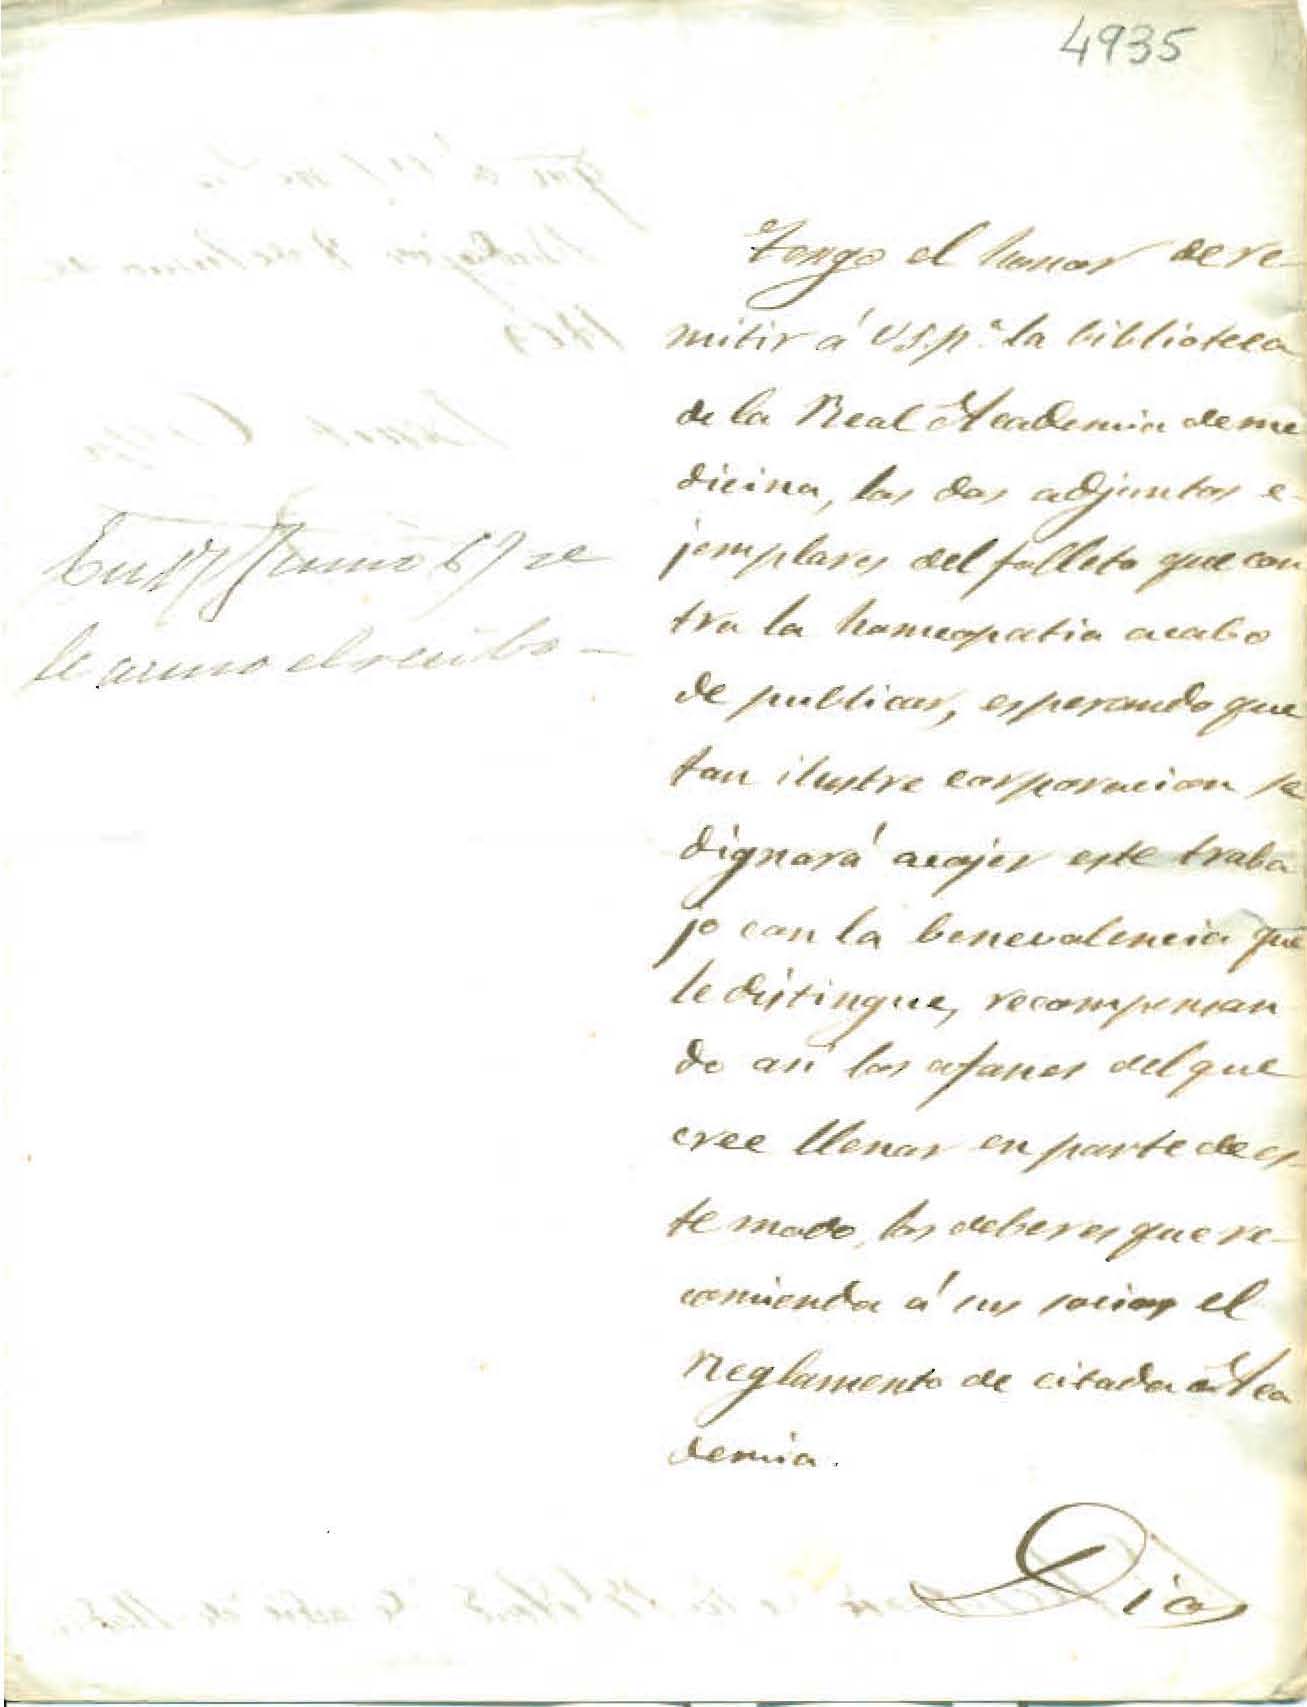 4935
Tengo el honor de re-
mitir á V.S. pª la biblioteca
de la Real Academia de me
dicina, los dos adjuntos e-
jemplares del folleto que con
tra la homeopatia acabo
de publicar, esperando que
tan ilustre corporacion se
dignará acojer este traba
jo con la benevolencia que
le distingue, recompensan
do asi los afanes del que
cree llenar en parte de es-
te modo, los deberes que re-
comienda á sus socios el
Reglamento de citada Aca
demia.
Dios
En 17 Junio 67 se
le acuso el recibo –